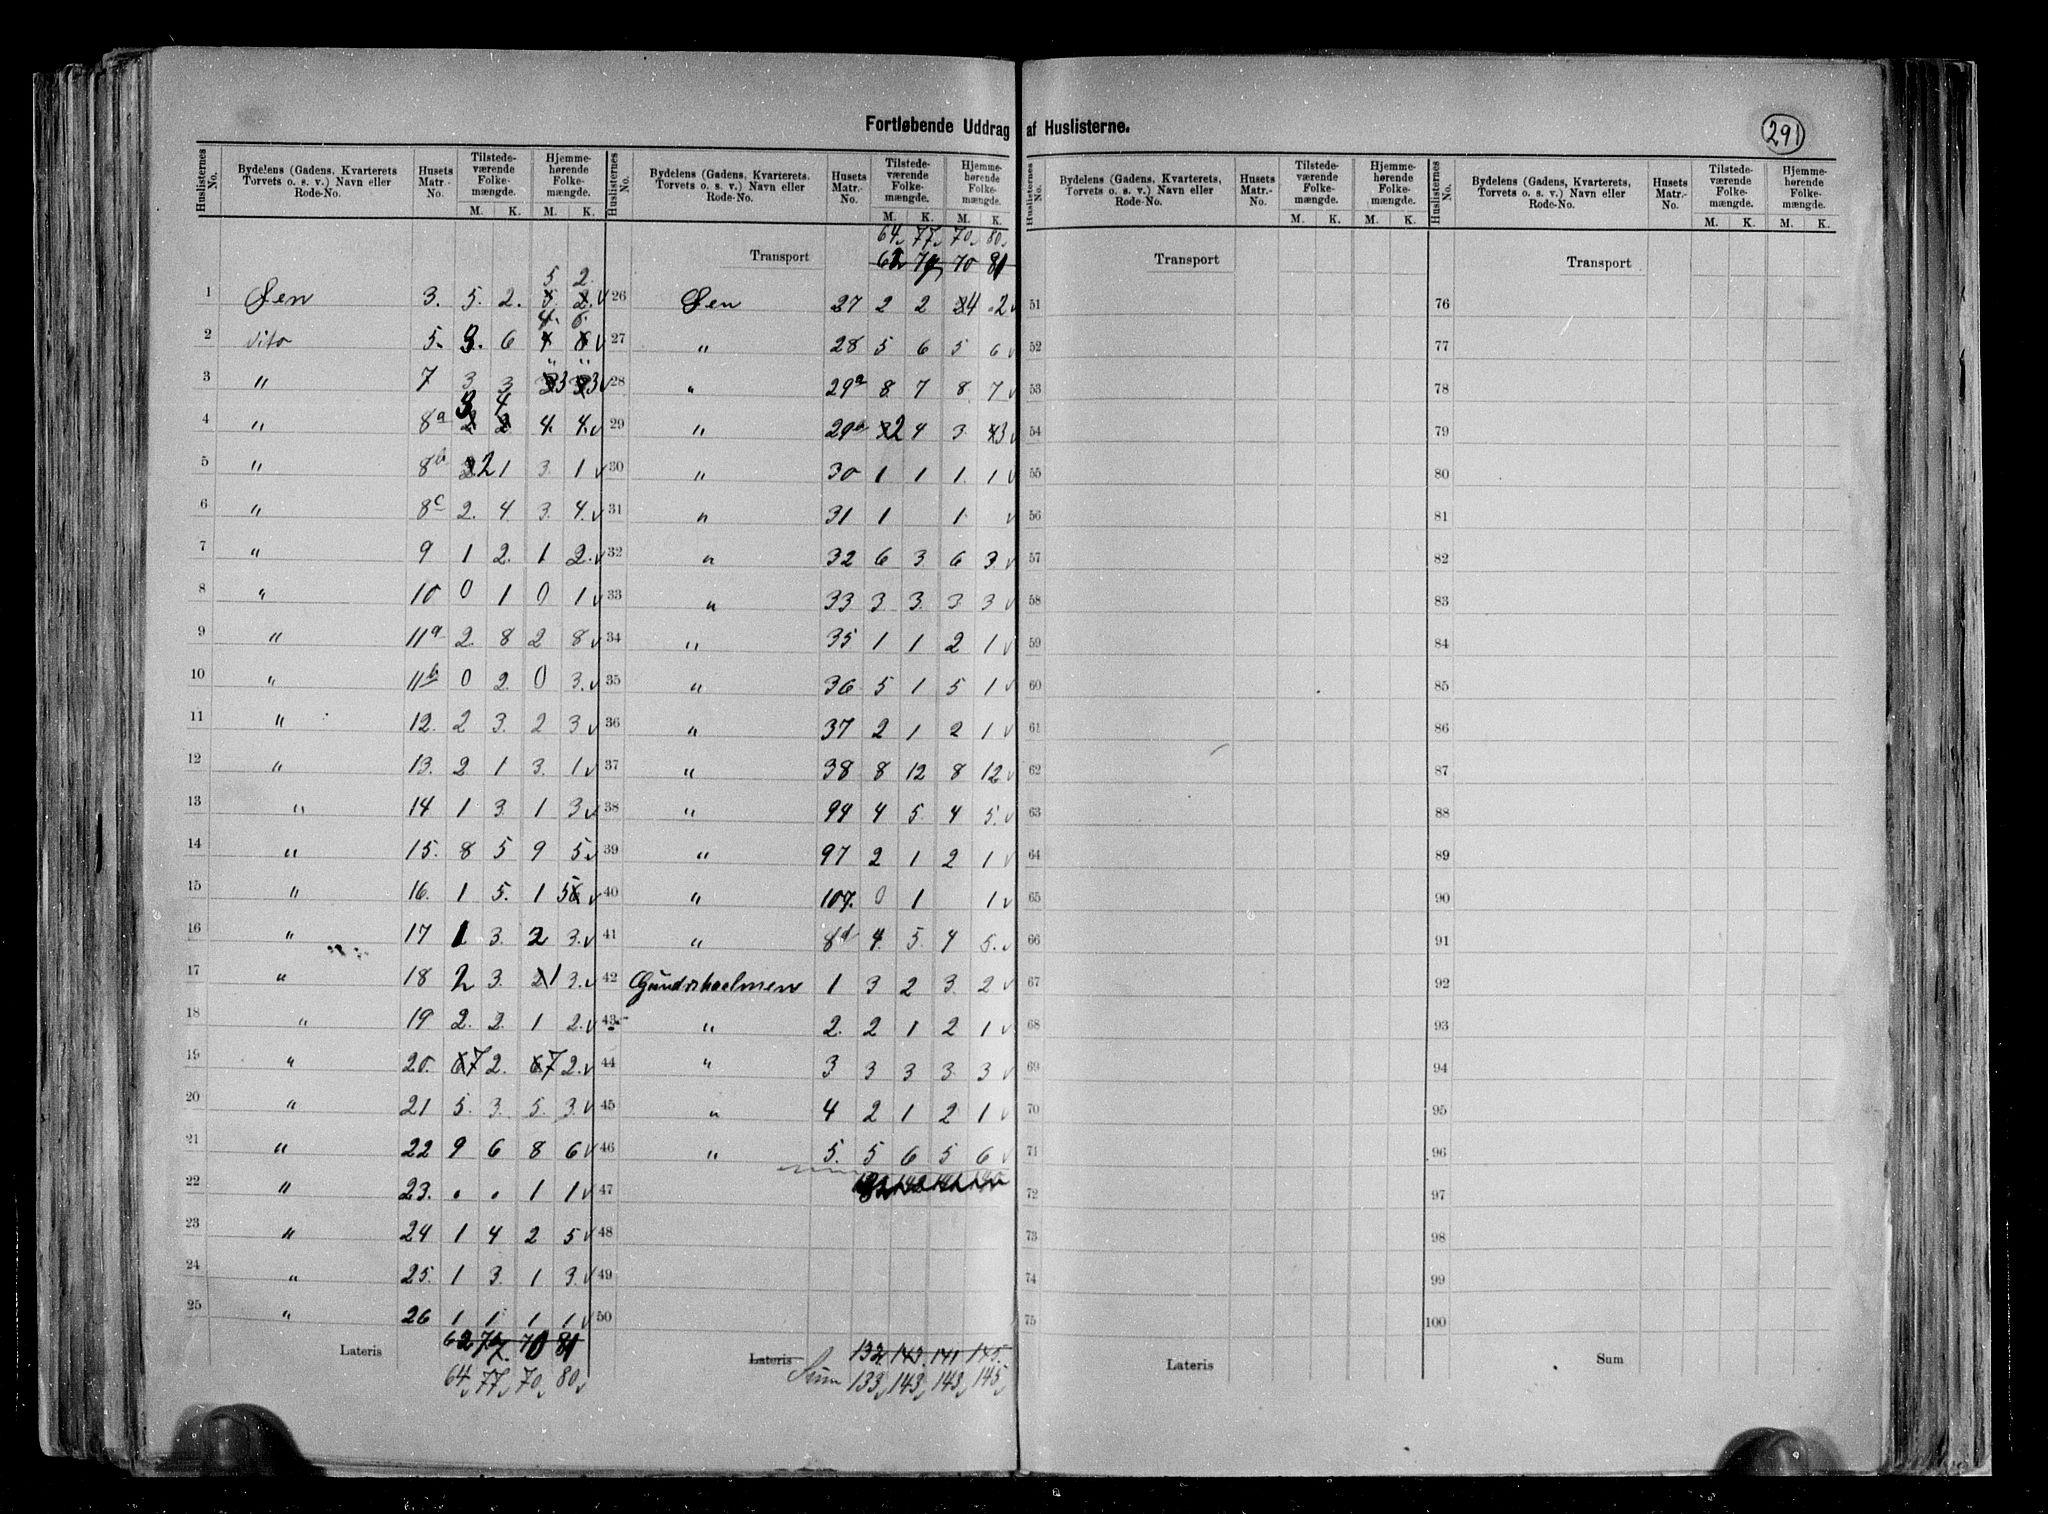 Fortløbende Uddrag af Huslisterne.
291
Huslisternes No. Bydelens (Gadens, Kvarterets Torvets o. s. v.) Navn eller Rode-No. Husets Matr.-No. Tilstede-værende Folke-mængde. M. K. Hjemme-hørende Folke-mængde. M. K.
1 Øen 3. 5. 2. 5 2.
2 dito 5. 3. 6 4. 6.
3 " 7 3 3 3 3
4 " 8a 3 4 4. 4.
5 " 8b 2 1 3. 1
6 " 8c 2. 4. 3. 4.
7 " 9 1 2. 1 2.
8 " 10 0 1 0 1
9 " 11a 2. 8 2 8
10 " 11b 0 2. 0 3.
11 " 12. 2 3. 2 3
12 " 13. 2 1 3. 1
13 " 14 1 3. 1 3
14 " 15. 8 5 9 5.
15 " 16. 1 5. 1 5
16 " 17 1 3. 2 3.
17 " 18 2 3. 1 3.
18 " 19 2. 2. 1 2.
19 " 20. 7 2. 7 2.
20 " 21 5. 3. 5. 3.
21 " 22 9 6 8 6
22 " 23. . . 1 1
23 " 24 1 4 2 5
24 " 25. 1 3. 1 3.
25 " 26 1 1 1 1
Lateris 62 77. 70 81
64 77 70 80
Huslisternes No. Bydelens (Gadens, Kvarterets Torvets o. s. v.) Navn eller Rode-No. Husets Matr.-No. Tilstede-værende Folke-mængde. M. K. Hjemme-hørende Folke-mængde. M. K.
64 77 70 80
Transport 70 81
26 Øen 27 2 2 4 2
27 " 28 5 6 5 6
28 " 29a 8 7 8. 7
29 " 29a 2 4 3. 3
30 " 30 1 1 1. 1
31 " 31 1 1.
32 " 32 6 3. 6 3.
33 " 33 3. 3. 3. 3
34 " 35 1 1 2 1
35 " 36 5 1 5 1
36 " 37 2 1 2 1
37 " 38 8 12 8 12
38 " 94 4 5. 4 5.
39 " 97 2 1 2 1
40 " 107. 0 1 1
41 " 8d 4. 5. 4 5.
42 1 3 2 3. 2
43 " 2. 2 1 2 1
44 " 3 3 3 3 3
45 " 4 2 1 2 1
46 " 5. 5 6 5 6
47
48
49
50
Lateris 132. 143. 141 145.
Sum 133 143 143 145
Huslisternes No. Bydelens (Gadens, Kvarterets, Torvets o. s. v.) Navn eller Rode-No. Husets Matr.-No. Tilstede-værende Folke-mængde. M. K. Hjemme-hørende Folke-mængde. M. K.
Transport
51
52
53
54
55
56
57
58
59
60
61
62
63
64
65
66
67
68
69
70
71
72
73
74
75
Lateris
Huslisternes No. Bydelens (Gadens, Kvarterets, Torvets o. s. v.) Navn eller Rode-No. Husets Matr.-No. Tilstede-værende Folke-mængde. M. K. Hjemme-hørende Folke-mængde. M. K.
Transport
76
77
78
79
80
81
82
83
84
85
86
87
88
89
90
91
92
93
94
95
96
97
98
99
100
Sum